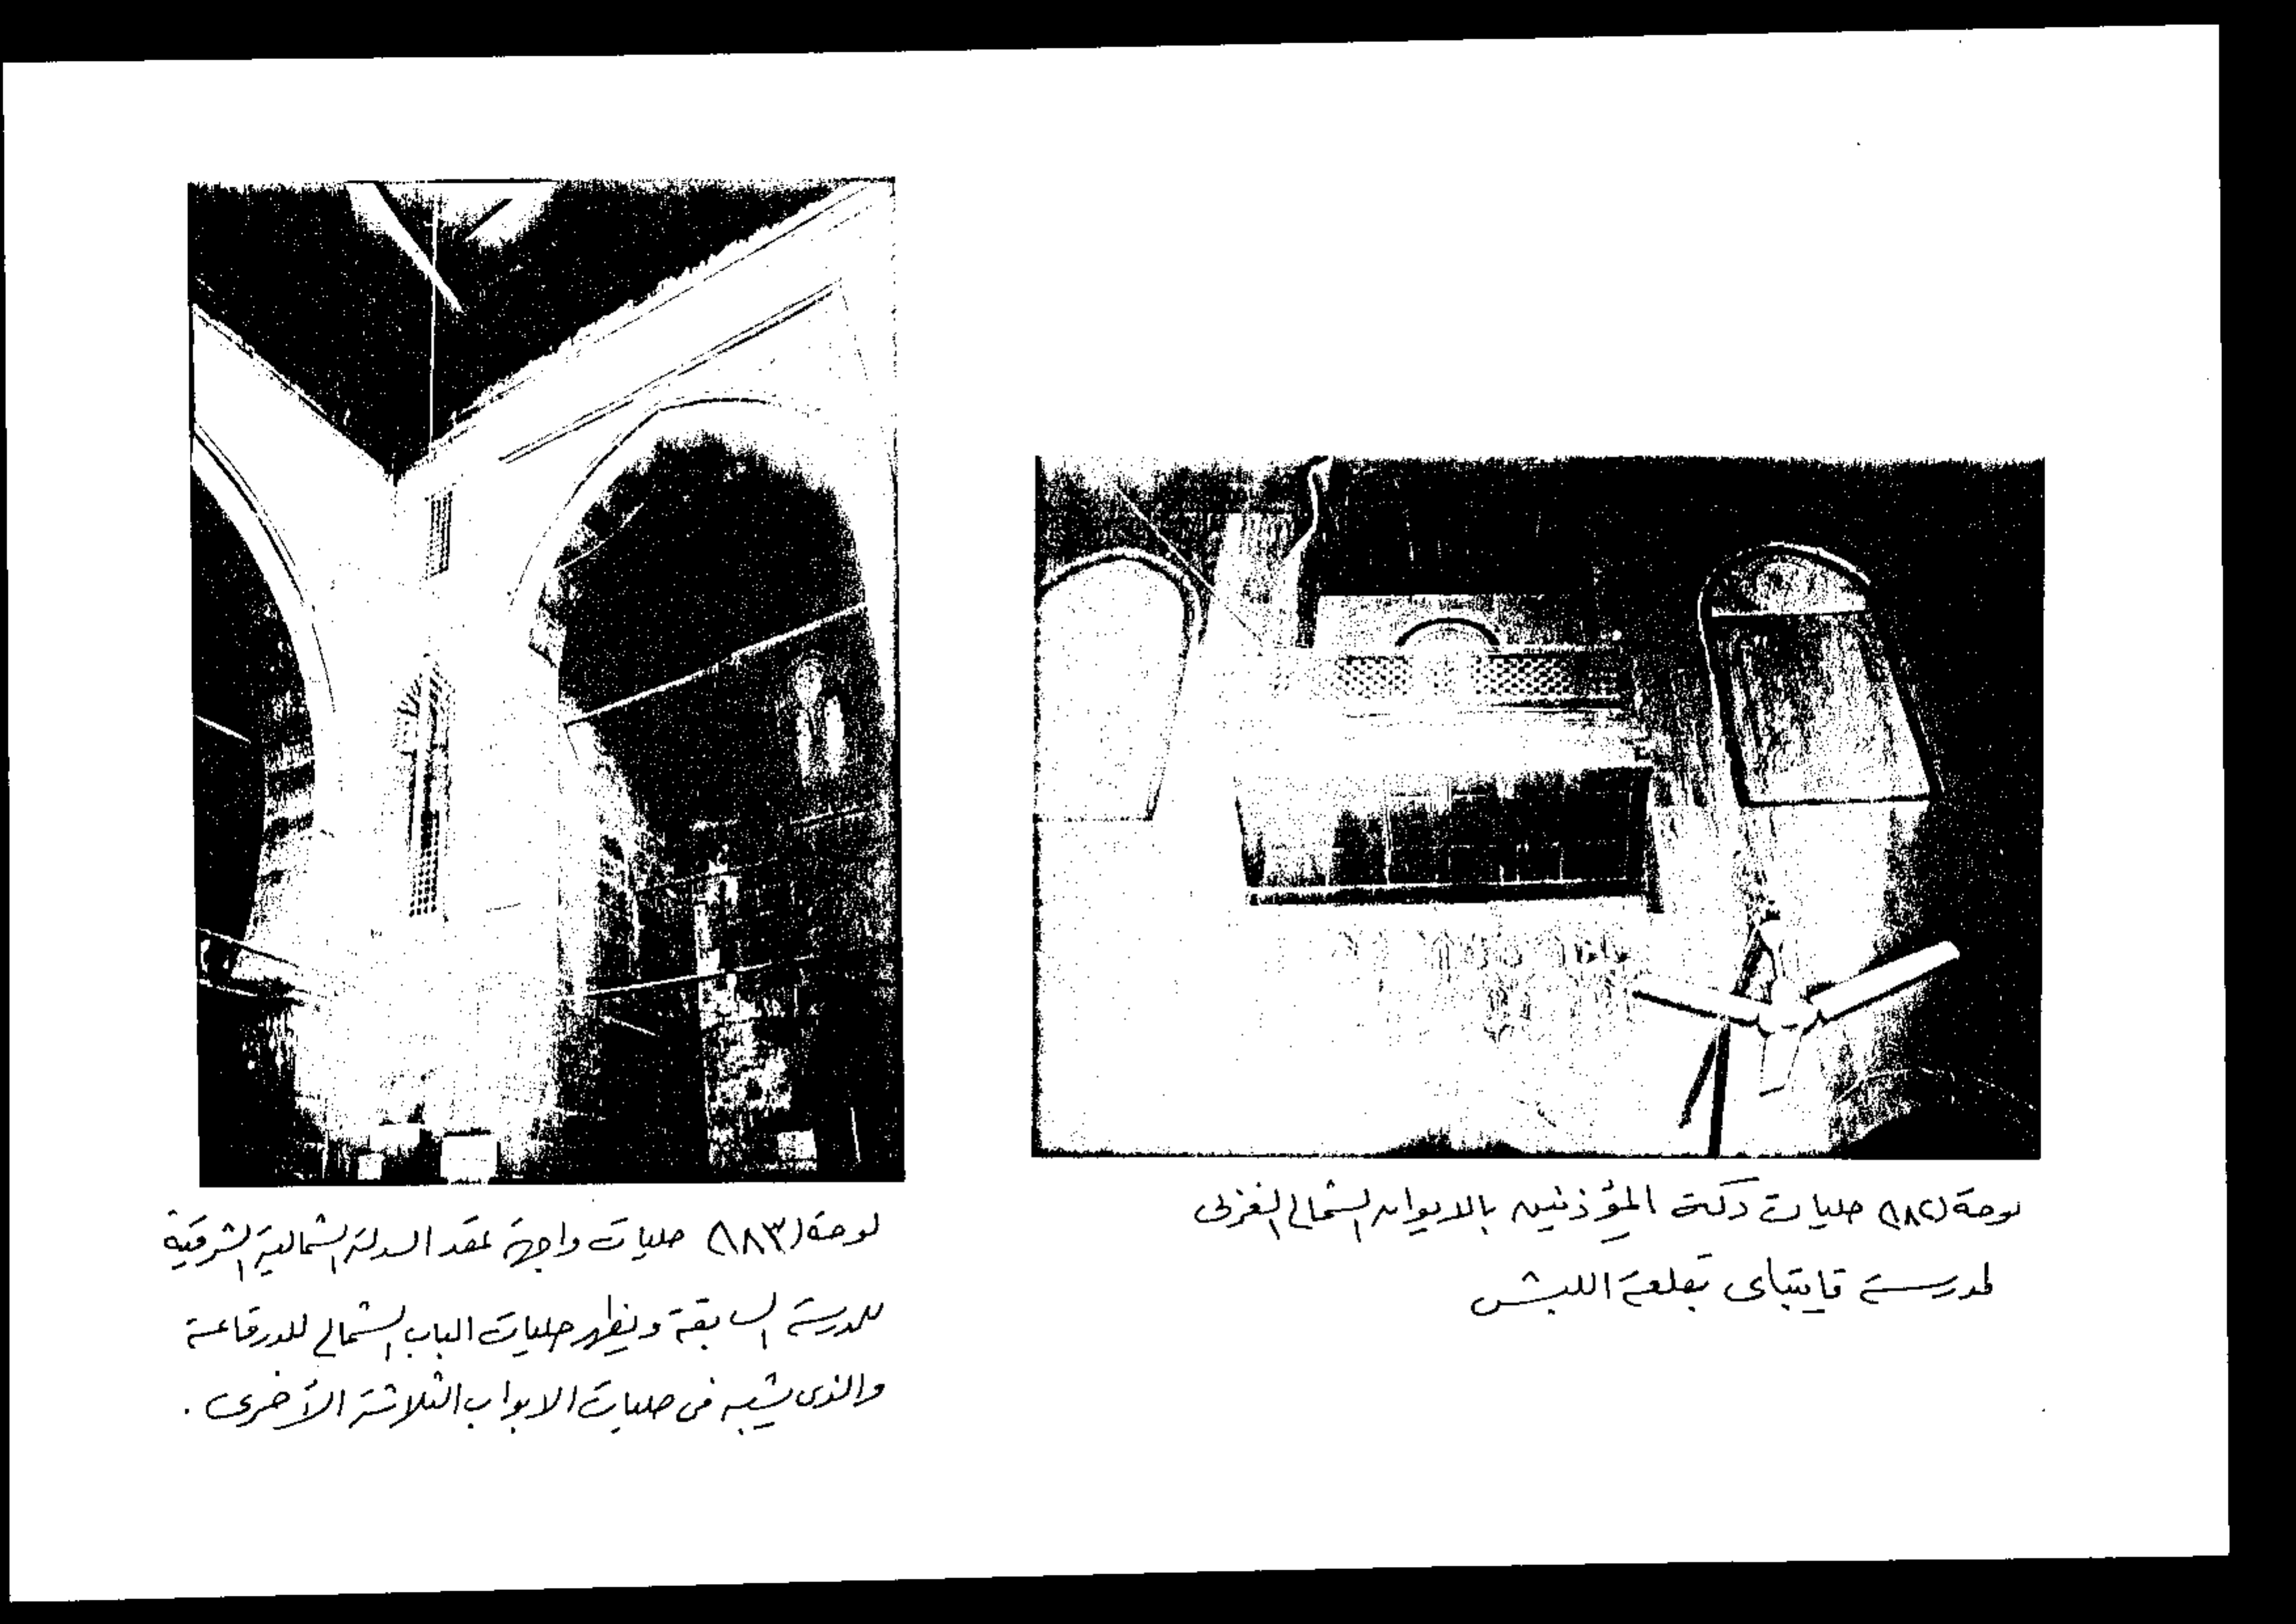 لوحة (١٨٢) حليات دكة المؤذنين بالايوان الشمالى الغربى
لمدرسة قايتباى بقلعة الكبش
لوحة (١٨٣) حليات واجهة عقد السدلة الشمالية الشرقية
للمدرسة السابقة ويظهر حليات الباب الشمالى للدرقاعة
والذى يشبه فى حليات الابواب الثلاثة الأخرى .